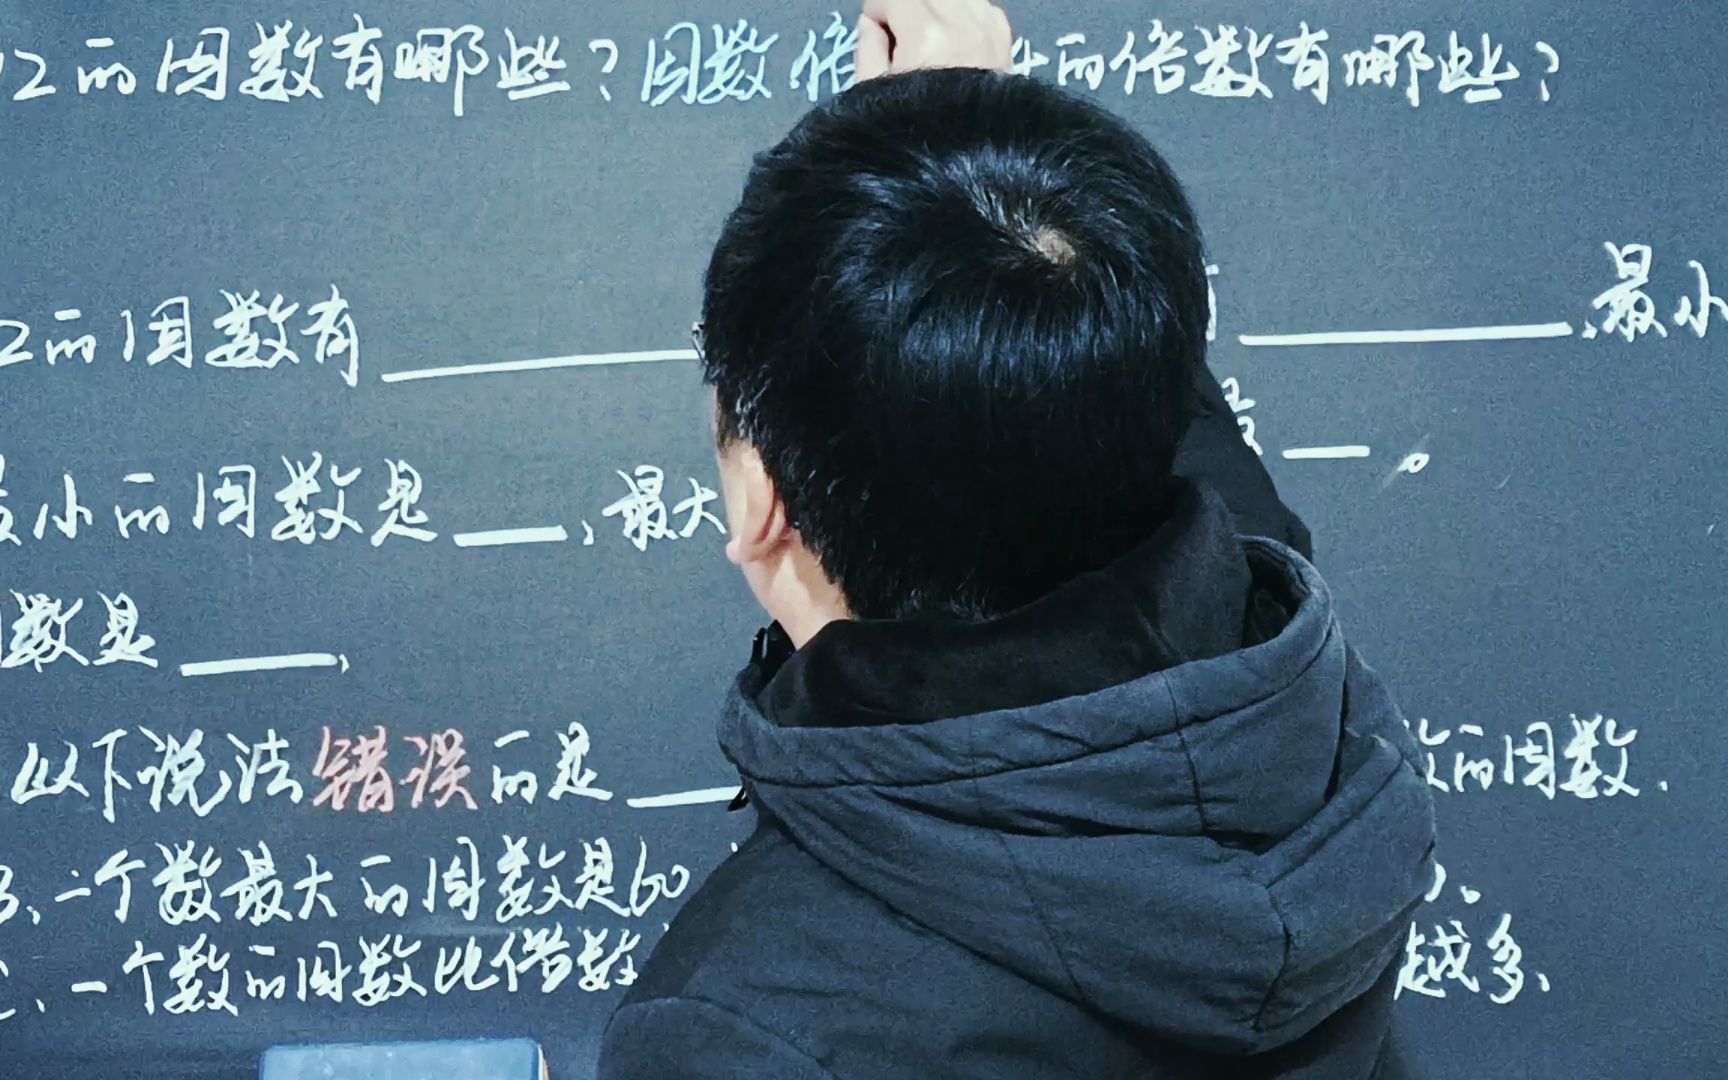 12的因数有哪些？因数倍 4的倍数有哪些？
2的因数有 ，最小
最小的因数是 ，最大 是 。
数是 ，
以下说法错误的是 数的因数.
B、一个数最大的因数是60
C、一个数的因数比倍数 越多、